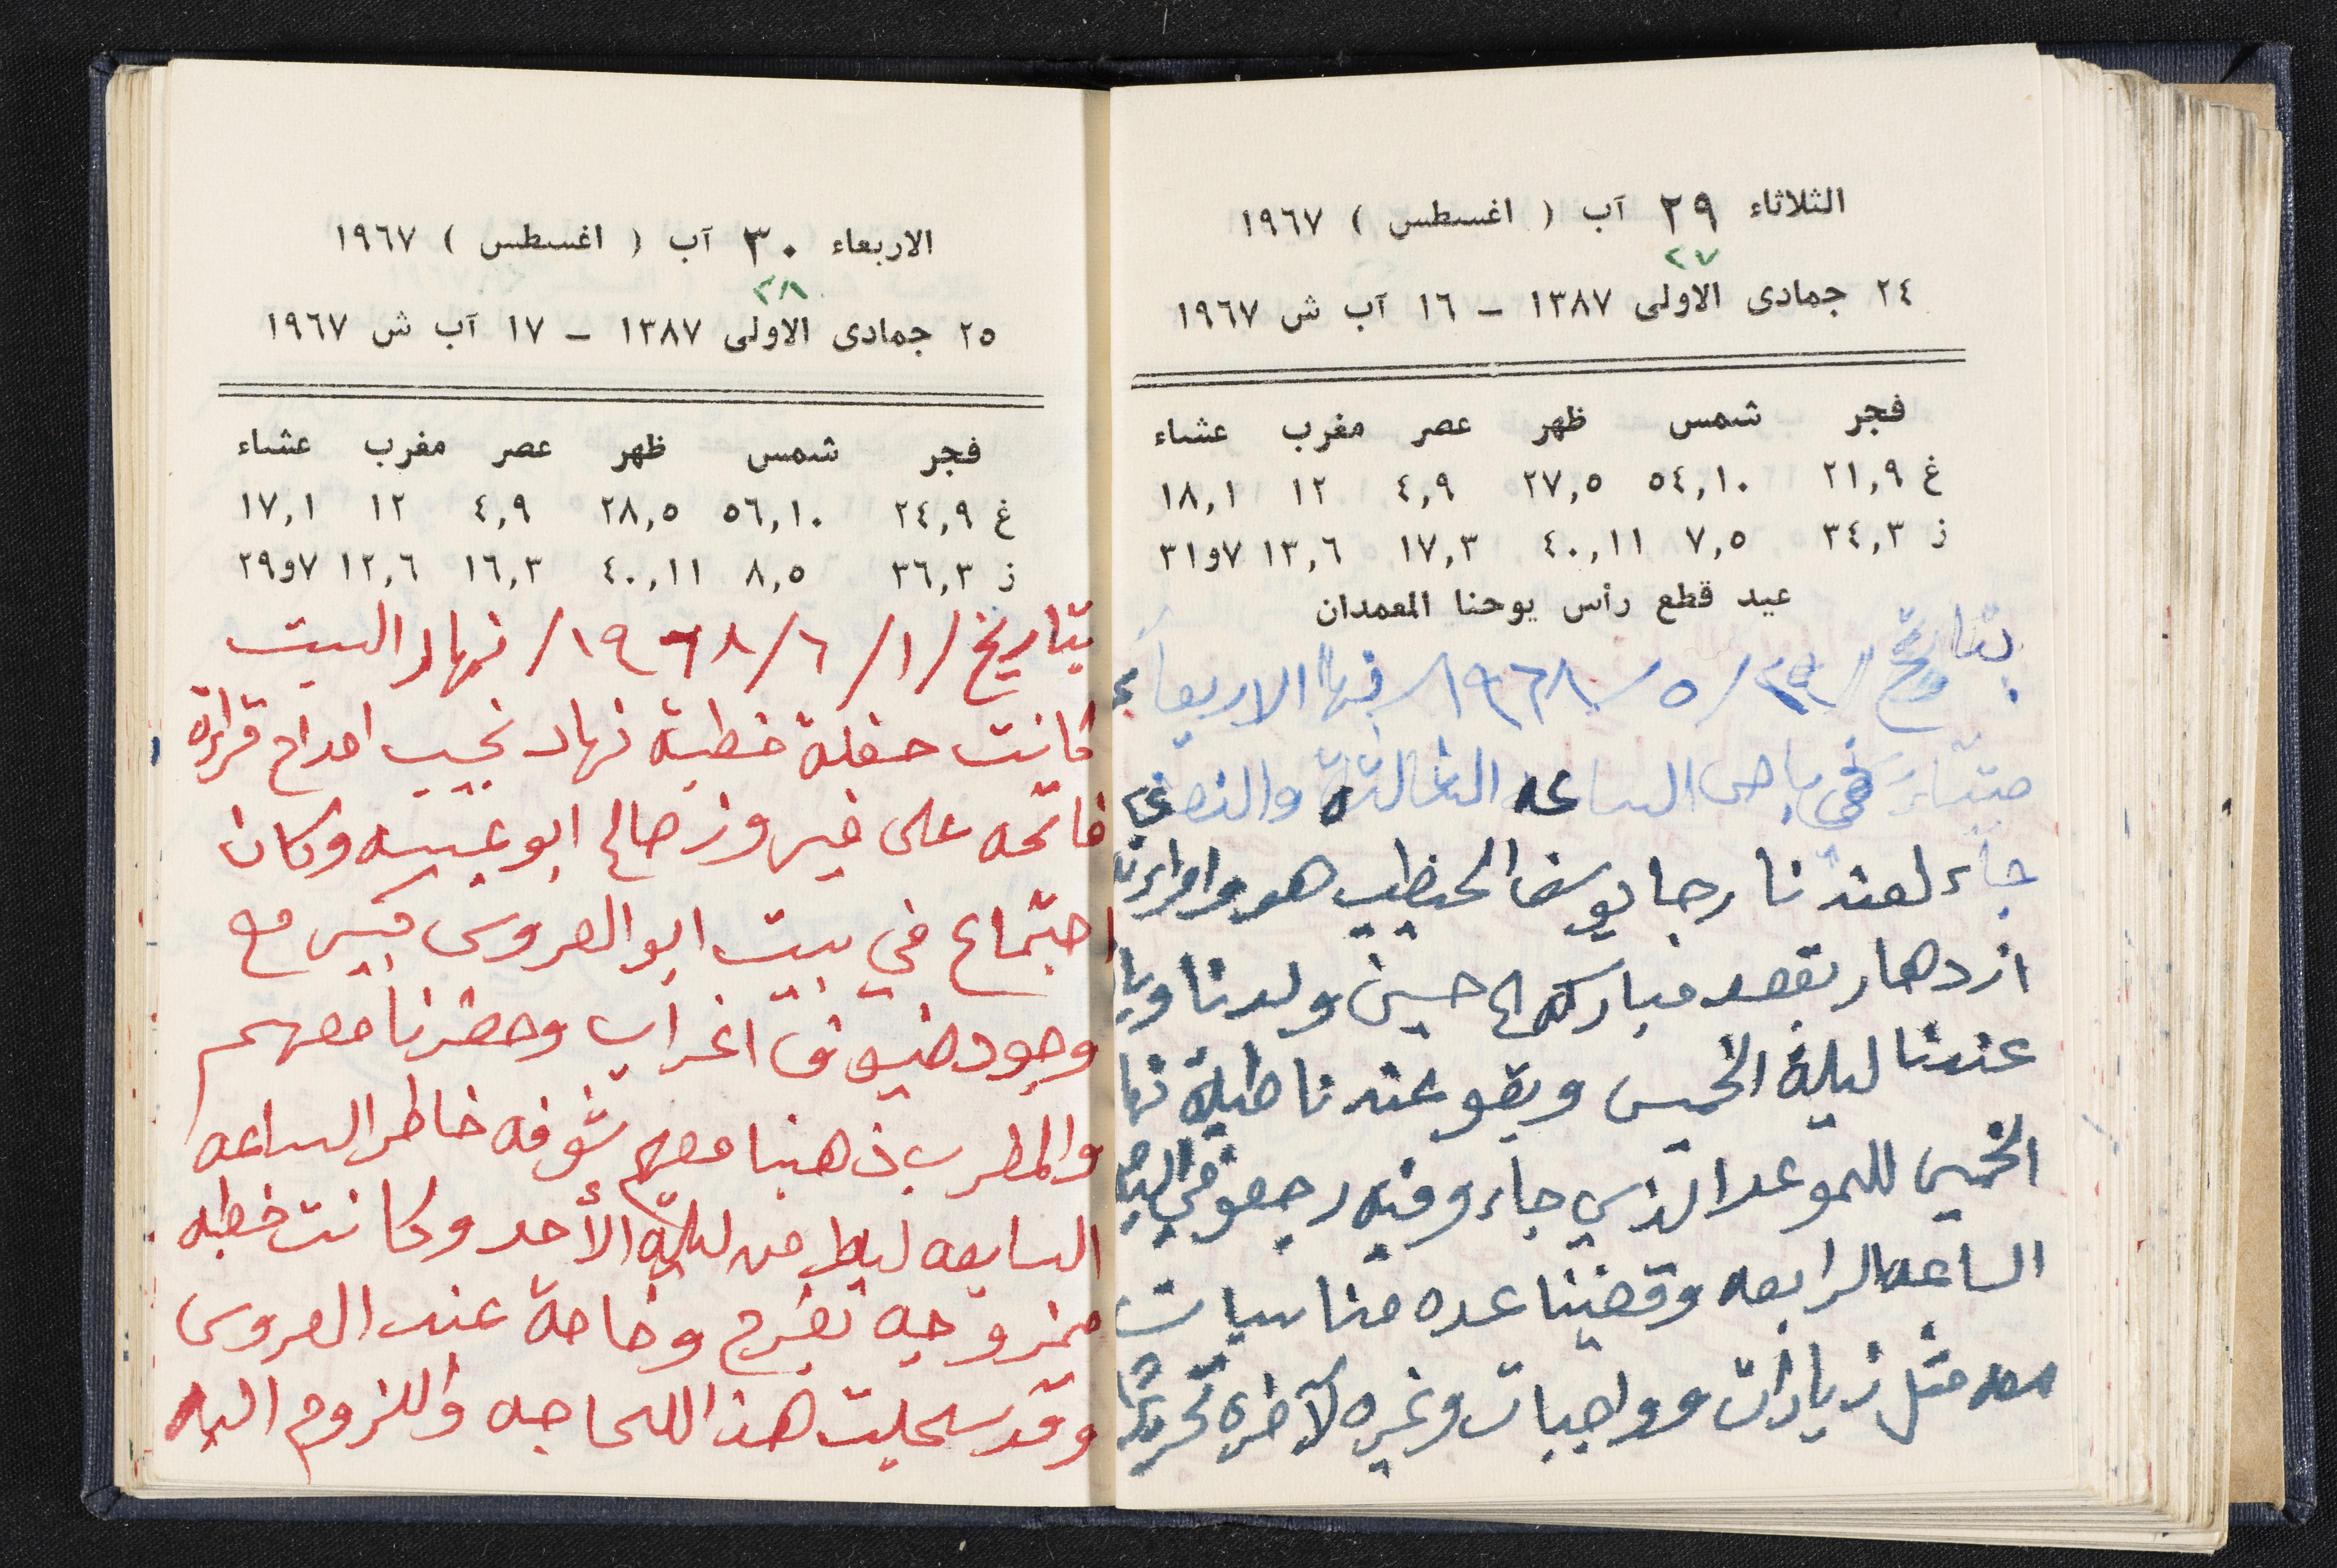 الثلاثاء ٢٩ آب ( اغسطس ) ١٩٦٧
٢٧
٢٤ جمادى الاولى ١٣٨٧ – ١٦ آب ش ١٩٦٧
فجر شمس ظهر عصر مغرب عشاء
غ ٢١,٩ ٥٤,١٠ ٢٧,٥ ٤,٩ ١٢ ١٨,١
ز ٣٤,٣ ٧,٥ ٤٠,١١ ١٧,٣ ١٣,٦ ٧و٣١
عيد قطع رأس يوحنا المعمدان
بتاريخ /٢٩/٥/١٩٦٨/ الاربعاء
الساعه الثالثة والنصف
جاء لعندنا رجا يوسف الحيطيب هو وامراءته
ازدهار بقصد مباركه حسين ولدنا
عندنا ليلة الخميس وبقو عندنا طيلة نها
الخميس للموعد الذي جاء وفيه رجعو في
الساعه الرابعه وقضينا عده مناسبات
معه مثل زيارات وواجبات وغيره لآخره
الاربعاء ٣٠ آب ( اغسطس ) ١٩٦٧
٢٨
٢٥ جمادى الاولى ١٣٨٧ – ١٧ آب ش ١٩٦٧
فجر شمس ظهر عصر مغرب عشاء
غ ٢٤,٩ ٥٦,١٠ ٢٨,٥ ٤,٩ ١٢ ١٧,١
ز ٣٦,٣ ٨,٥ ٤٠,١١ ١٦,٣ ١٢,٦ ٧و٢٩
بتاريخ /١/٦/١٩٦٨/ نهار السبت
كانت حفلة خطبة نهاد نجيب امداح قرائة
فاتحه على فيروز صالح ابو عبيه وكان
اجتماع في بيت ابو العروس كبير مع
وجود ضيوف اغراب وحضرنا معهم
والمطرب ذهبنا معهم شوفه خاطر الساعه
السابعه ليلا من ليلة الأحد وكانت خطبه
ممزوجه بفرح وخاصة عند العروس
وقد سجلت هذا للحاجه واللزوم اليه